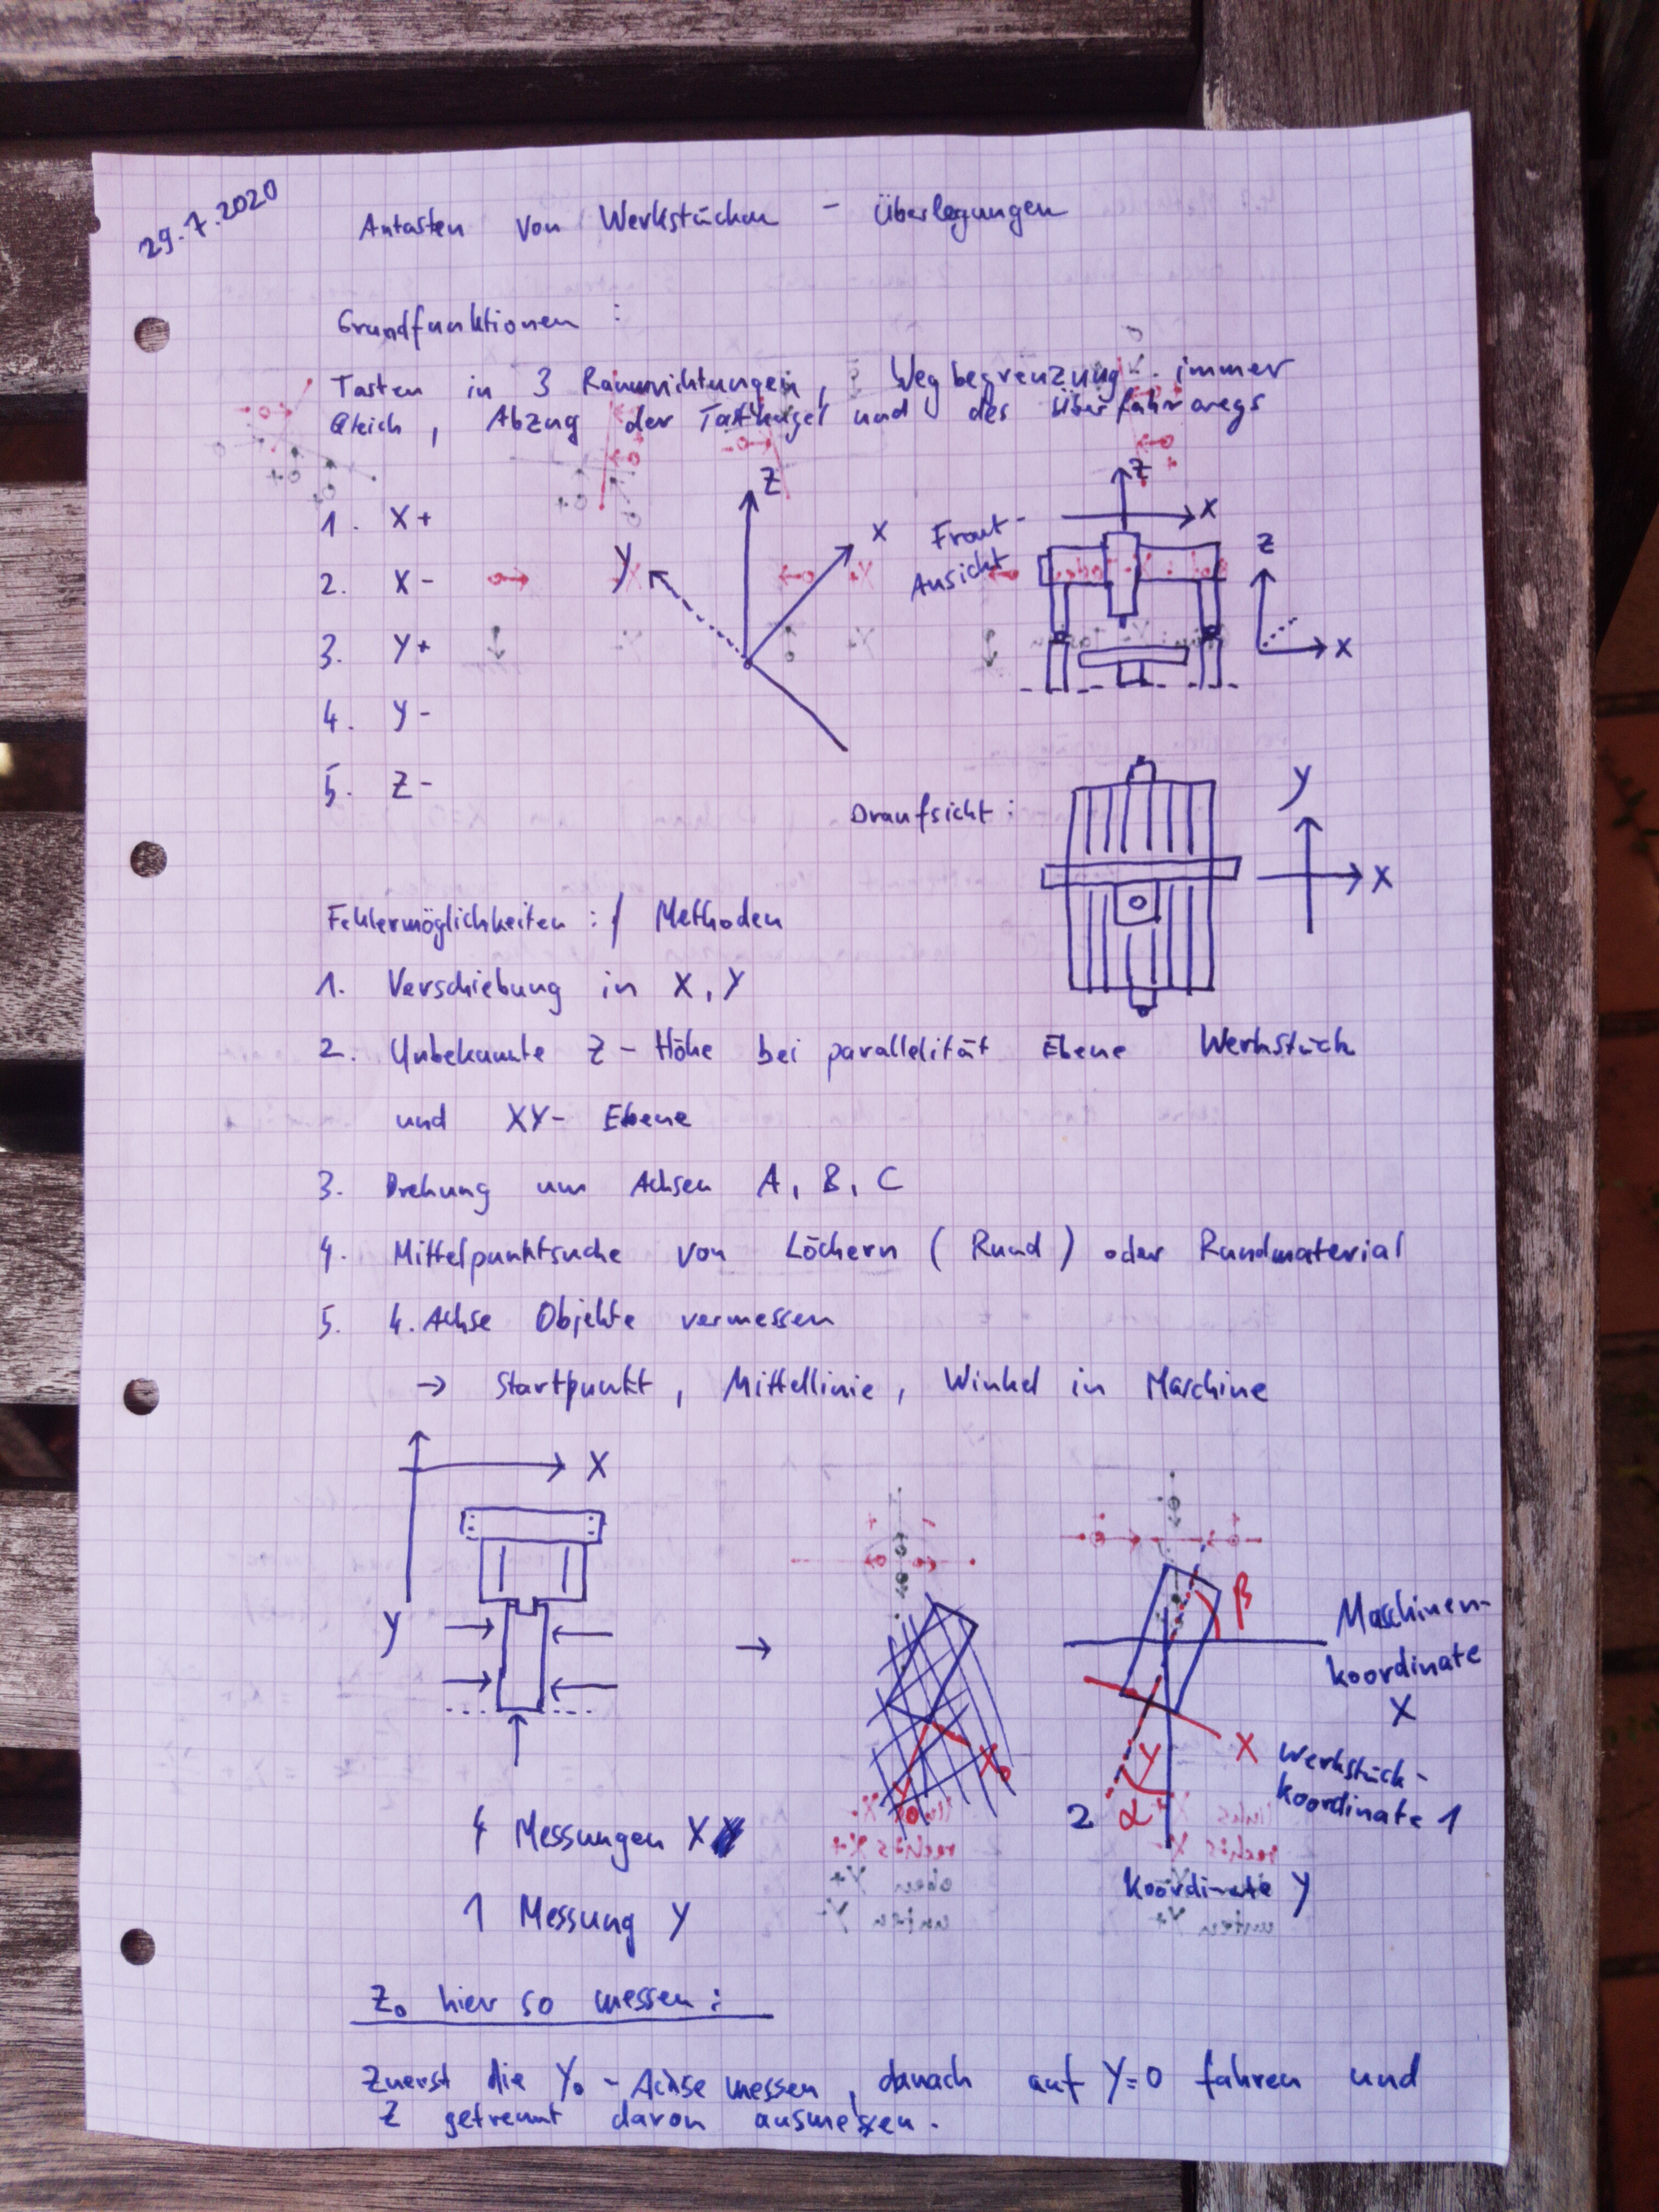 29.7.2020
Antasten von Werkstücken - Überlegungen
Grundfunktionen :
Tasten in 3 Raumrichtungen, Wegbegrenzung immer
Gleich, Abzug der Tastkugel und des Überfahrwegs
1. X+
2. X-
3. Y+
4. Y-
5. Z-
Z
X
Y
Front-
Ansicht
Z
X
Z
X
Draufsicht :
Y
X
Fehlermöglichkeiten : / Methoden
1. Verschiebung in X, Y
2. Unbekannte Z-Höhe bei parallelität Ebene Werkstück
und XY- Ebene
3. Drehung um Achsen A, B, C
4. Mittelpunktsuche von Löchern (Rund) oder Rundmaterial
5. 4. Achse Objekte vermessen
→ Startpunkt, Mittellinie, Winkel in Maschine
X
Y
→
β
Maschinen-
koordinate
X
X Werkstück-
koordinate 1
Y
2 α
Koordinate Y
4 Messungen X
1 Messung Y
Z₀ hier so messen :
Zuerst die Y₀ - Achse messen, danach auf Y=0 fahren und
Z getrennt davon ausmessen.